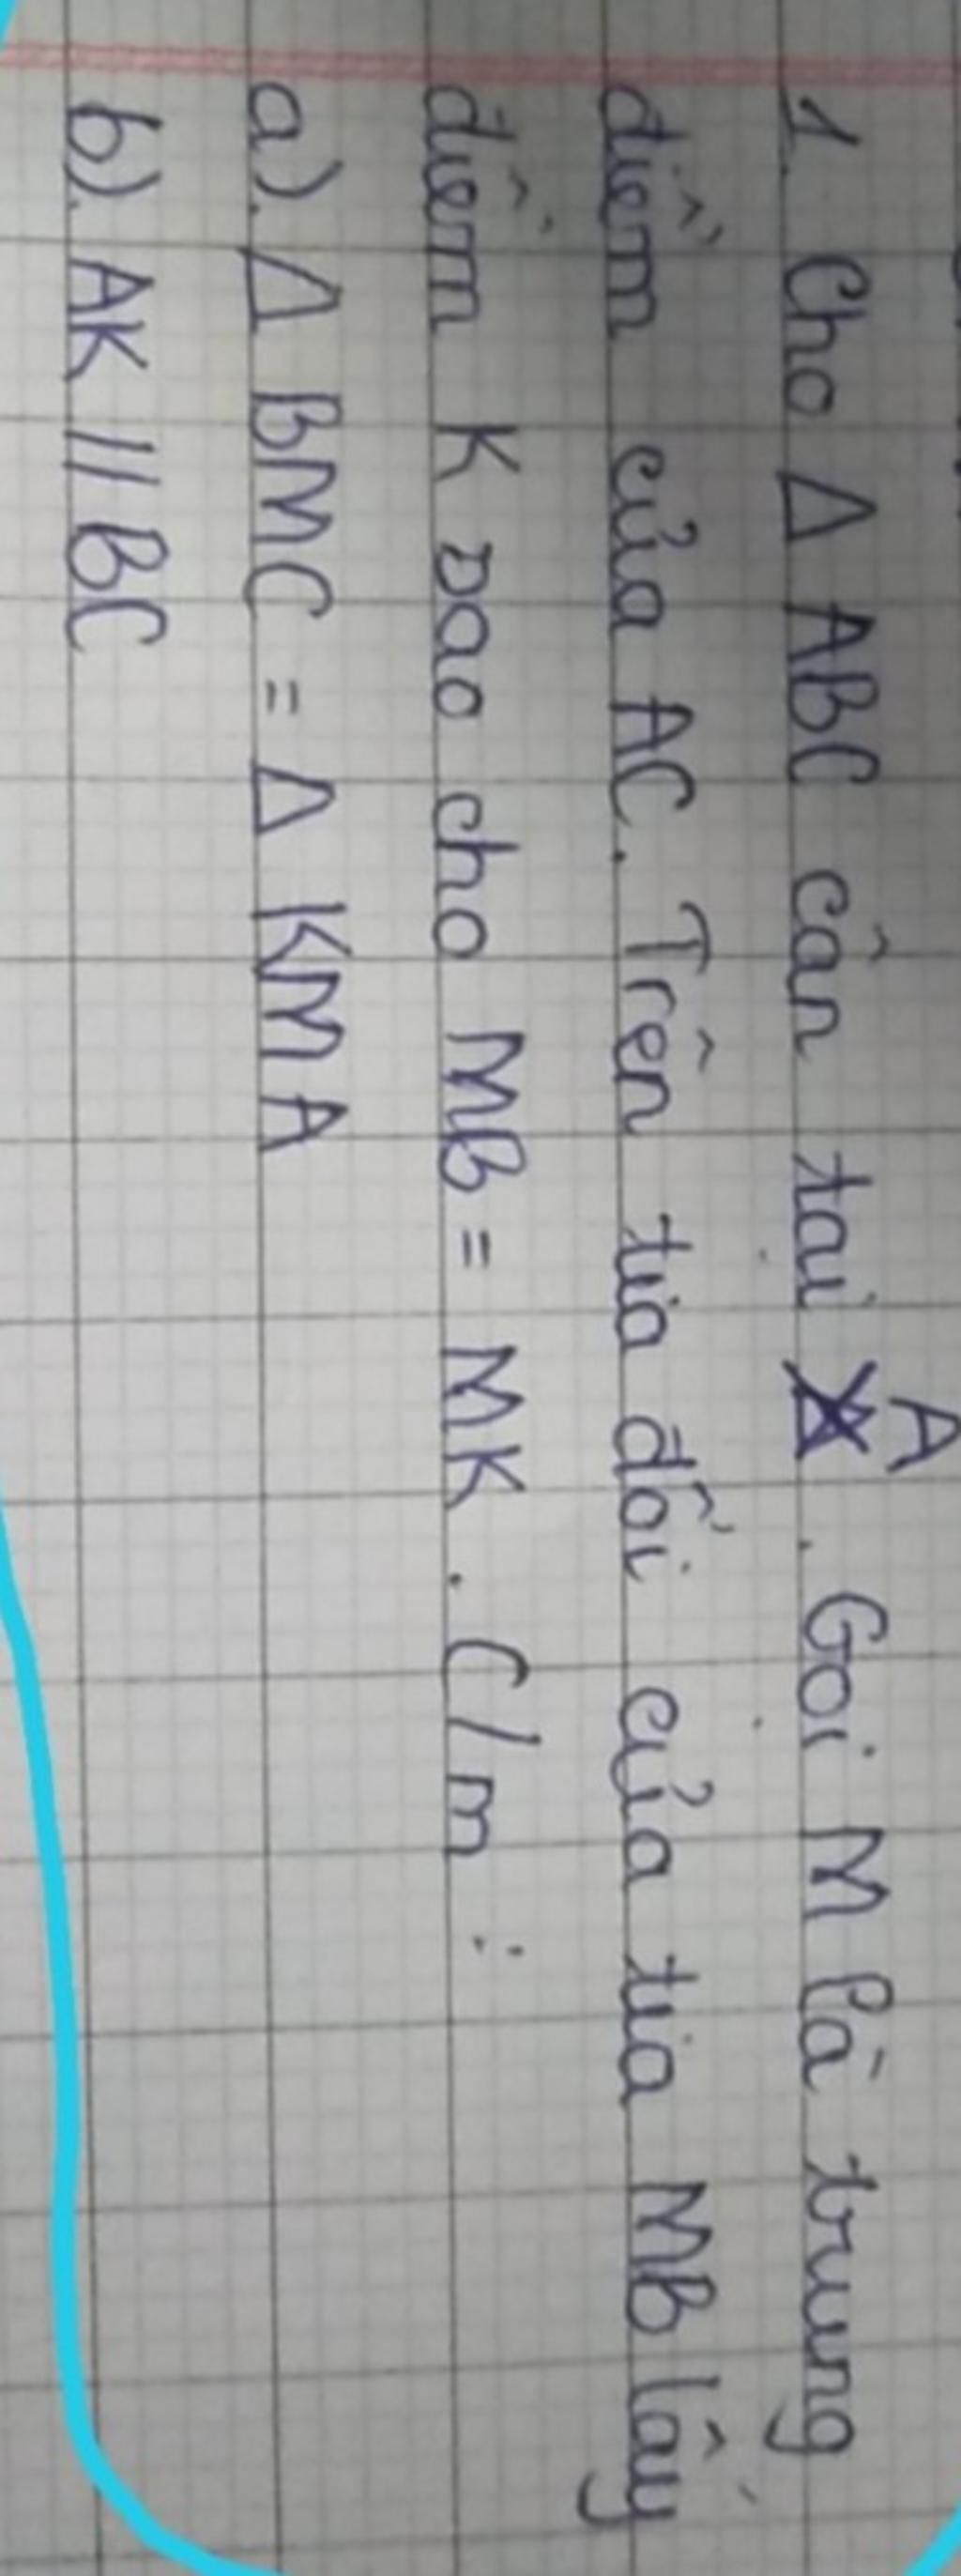 1. Cho Δ ABC cân tại A. Gọi M là trung
điểm của AC. Trên tia đối của tia MB lấy
điểm K sao cho MB = MK. C/m :
a). Δ BMC = Δ KMA
b). AK // BC